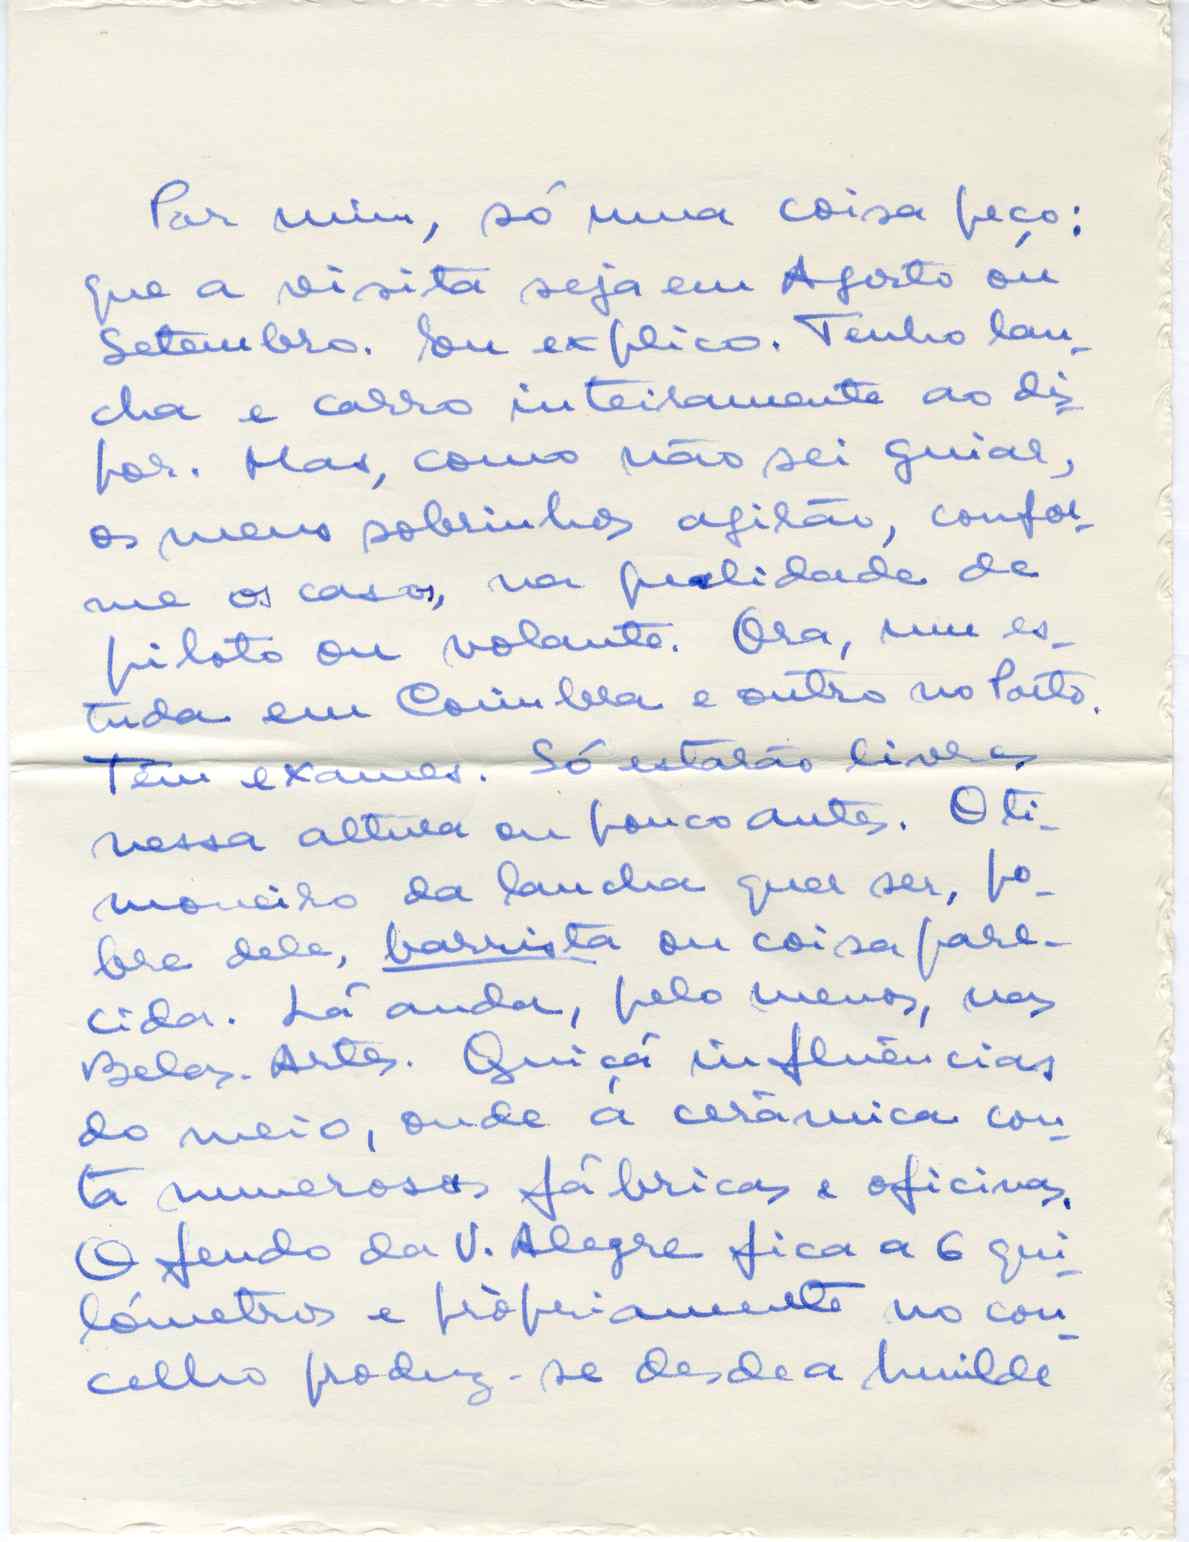 Por mim, só uma coisa peço:
que a visita seja em Agosto ou
Setembro. Eu explico. Tenho lan-
cha e carro inteiramente ao dis-
por. Mas, como não sei guiar,
os meus sobrinhos agirão, confor-
me os casos, na qualidade de
piloto ou volante. Ora, um es-
tuda em Coimbra e outro no Porto.
Têm exames. Só estarão livres
nessa altura ou pouco antes. O ti-
moneiro da lancha quer ser, po-
bre dele, barrista ou coisa pare-
cida. Lá anda, pelo menos, nas
Belas-Artes. Quiçá influências
do meio, onde a cerâmica con-
ta numerosas fábricas e oficinas.
O feudo da V. Alegre fica a 6 qui-
lómetros e pròpriamente no con-
celho produz-se desde a humilde